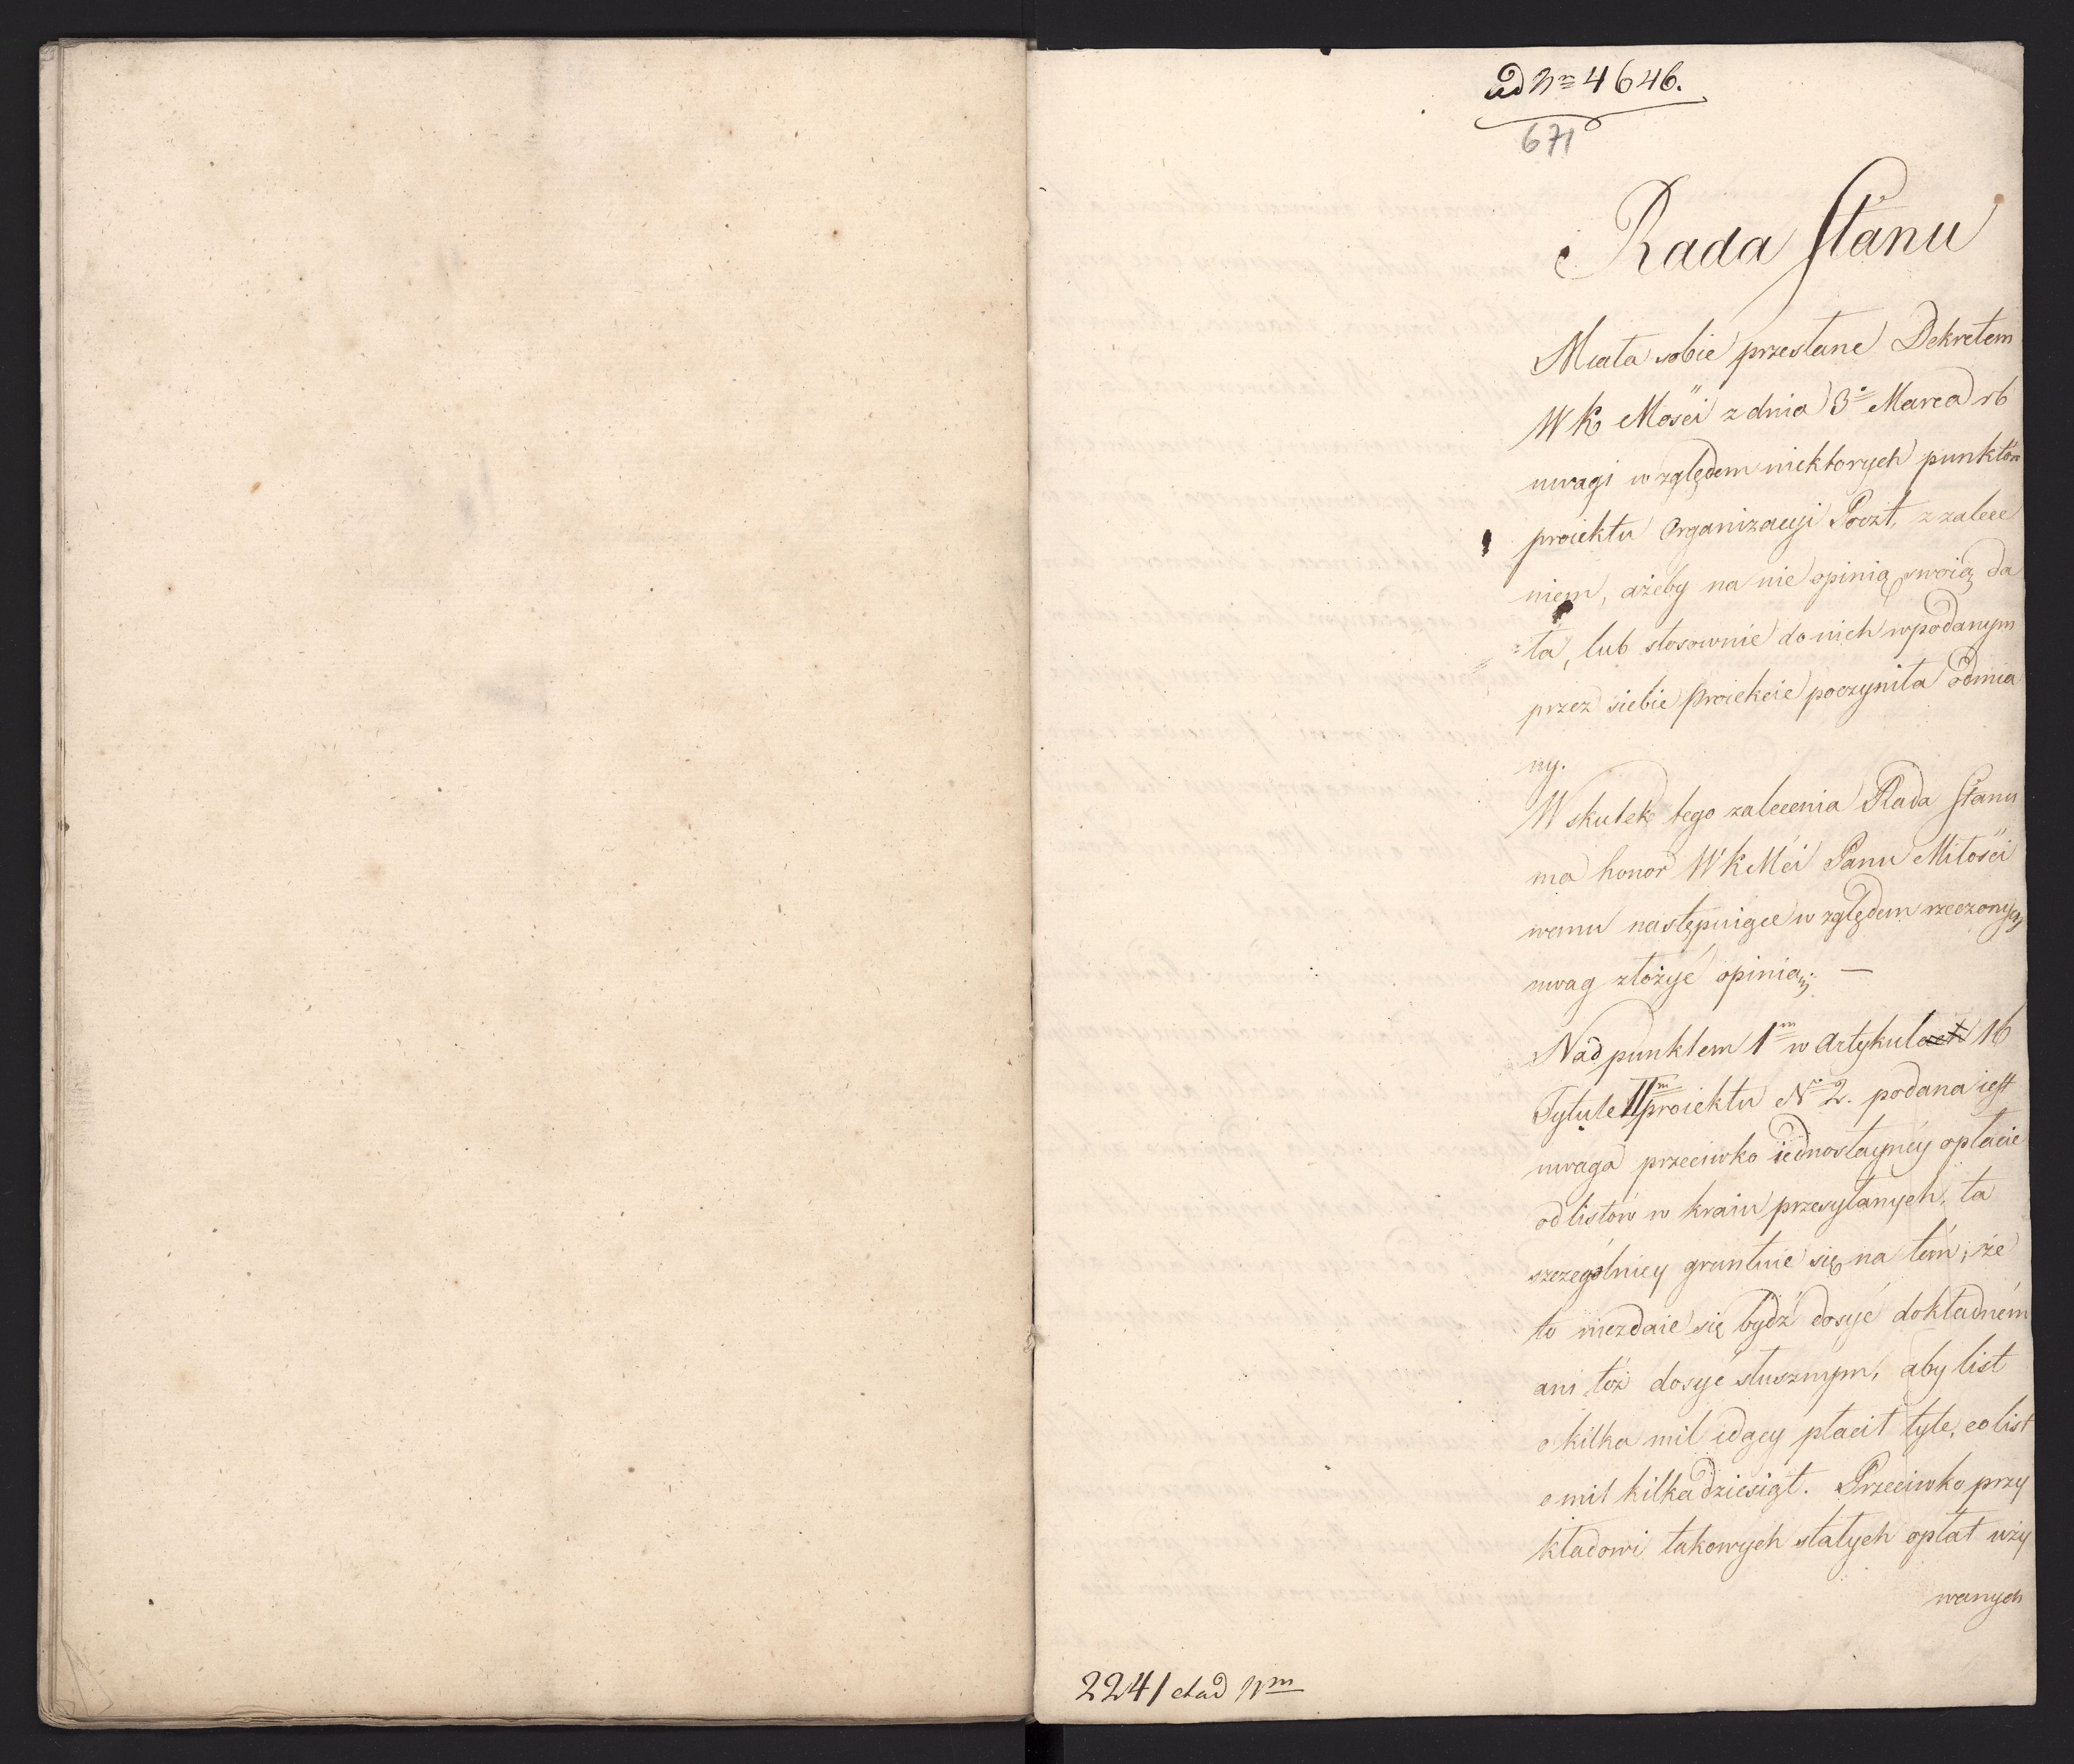 ad Nm 4646.
671
Rada Stanu
Miała sobie przesłane Dekretem
WK Mości z dnia 3o Marca rb
uwagi względem niektorych punktów
proiektu Organizacyi Poczt, z zalece
niem, ażeby na nie opinią swoią da
=ła, lub stosownie do nich w podanym
przez siebie proiekcie poczyniła odmia
ny.
W skutek tego zalecenia Rada Stanu
ma honor WKMći Panu Miłości
wemu następuiące względem rzeczonych
uwag złożyć opinią; —
Nad punktem 1m w Artykulach 16
Tytule IIm proiektu No 2. podana iest
uwaga przeciwko iednostayney opłacie
od listów w kraiu przesyłanych, ta
szczególniey gruntuie się na tém, że
to niezdaie się bydź dosyć dokładném
ani téż dosyć słusznym, aby list
o kilka mil idący płacił tyle, co list
o mil kilkadziesiąt. Przeciwko przy
kładowi takowych stałych opłat uży
wanych
2241 et ad Nm